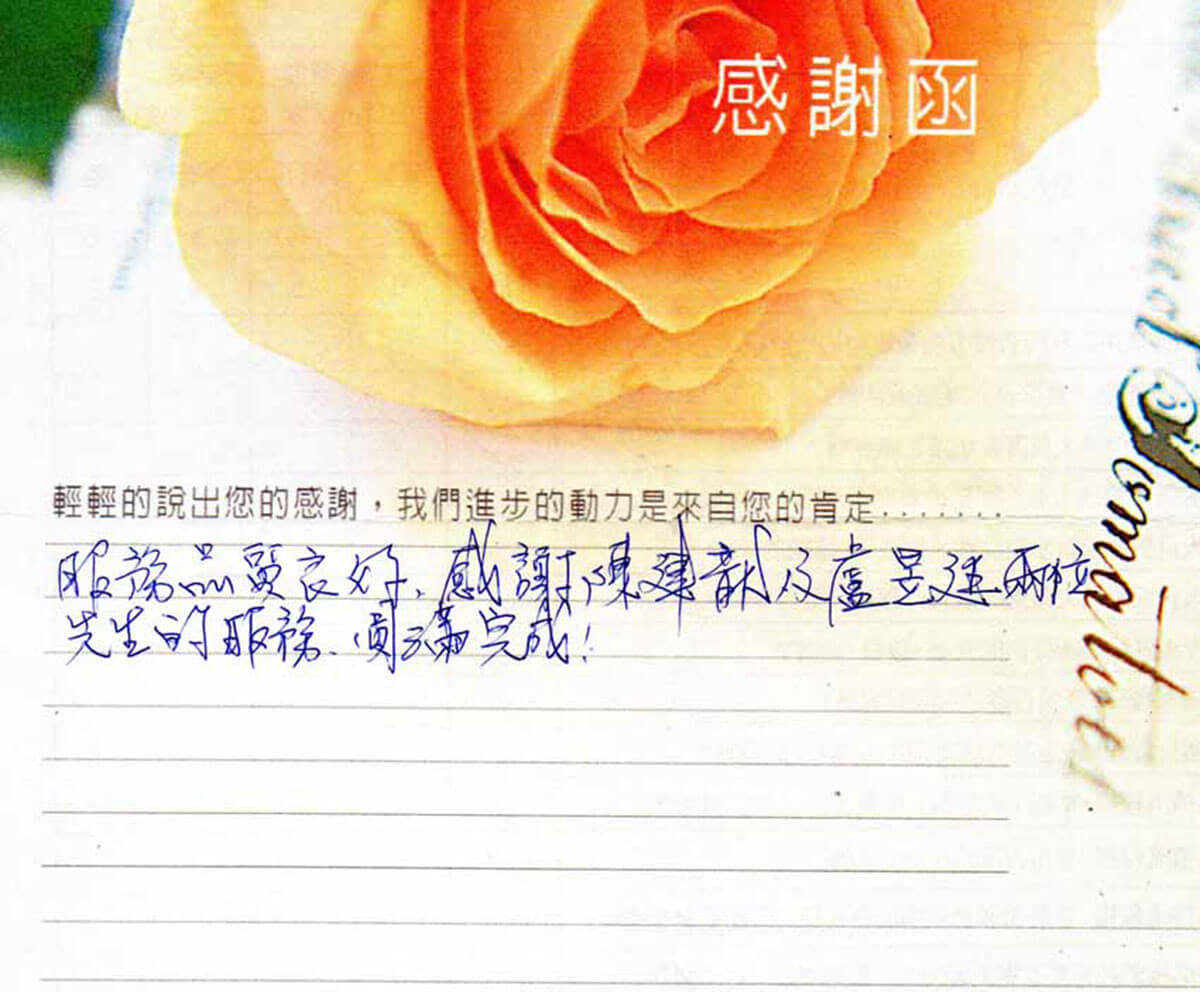 感謝函
輕輕的說出您的感謝，我們進步的動力是來自您的肯定.......
服務品質良好、感謝陳建獻及盧昱廷兩位
先生的服務、圓滿完成!